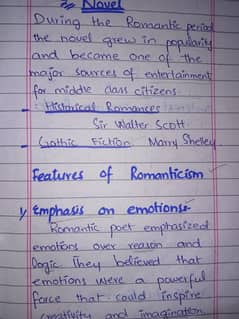 Novel
During the Romantic period
the novel grew in popularity
and became one of the
major sources of entertainment
for middle class citizens.
- Historical Romances
Sir Walter Scott
- Gothic Fiction. Marry Shelley
Features of Romanticism
Emphasis on emotions
Romantic poet emphasized
emotions over reason and
logic. They believed that
emotions were a powerful
force that could inspire
creativity and imagination